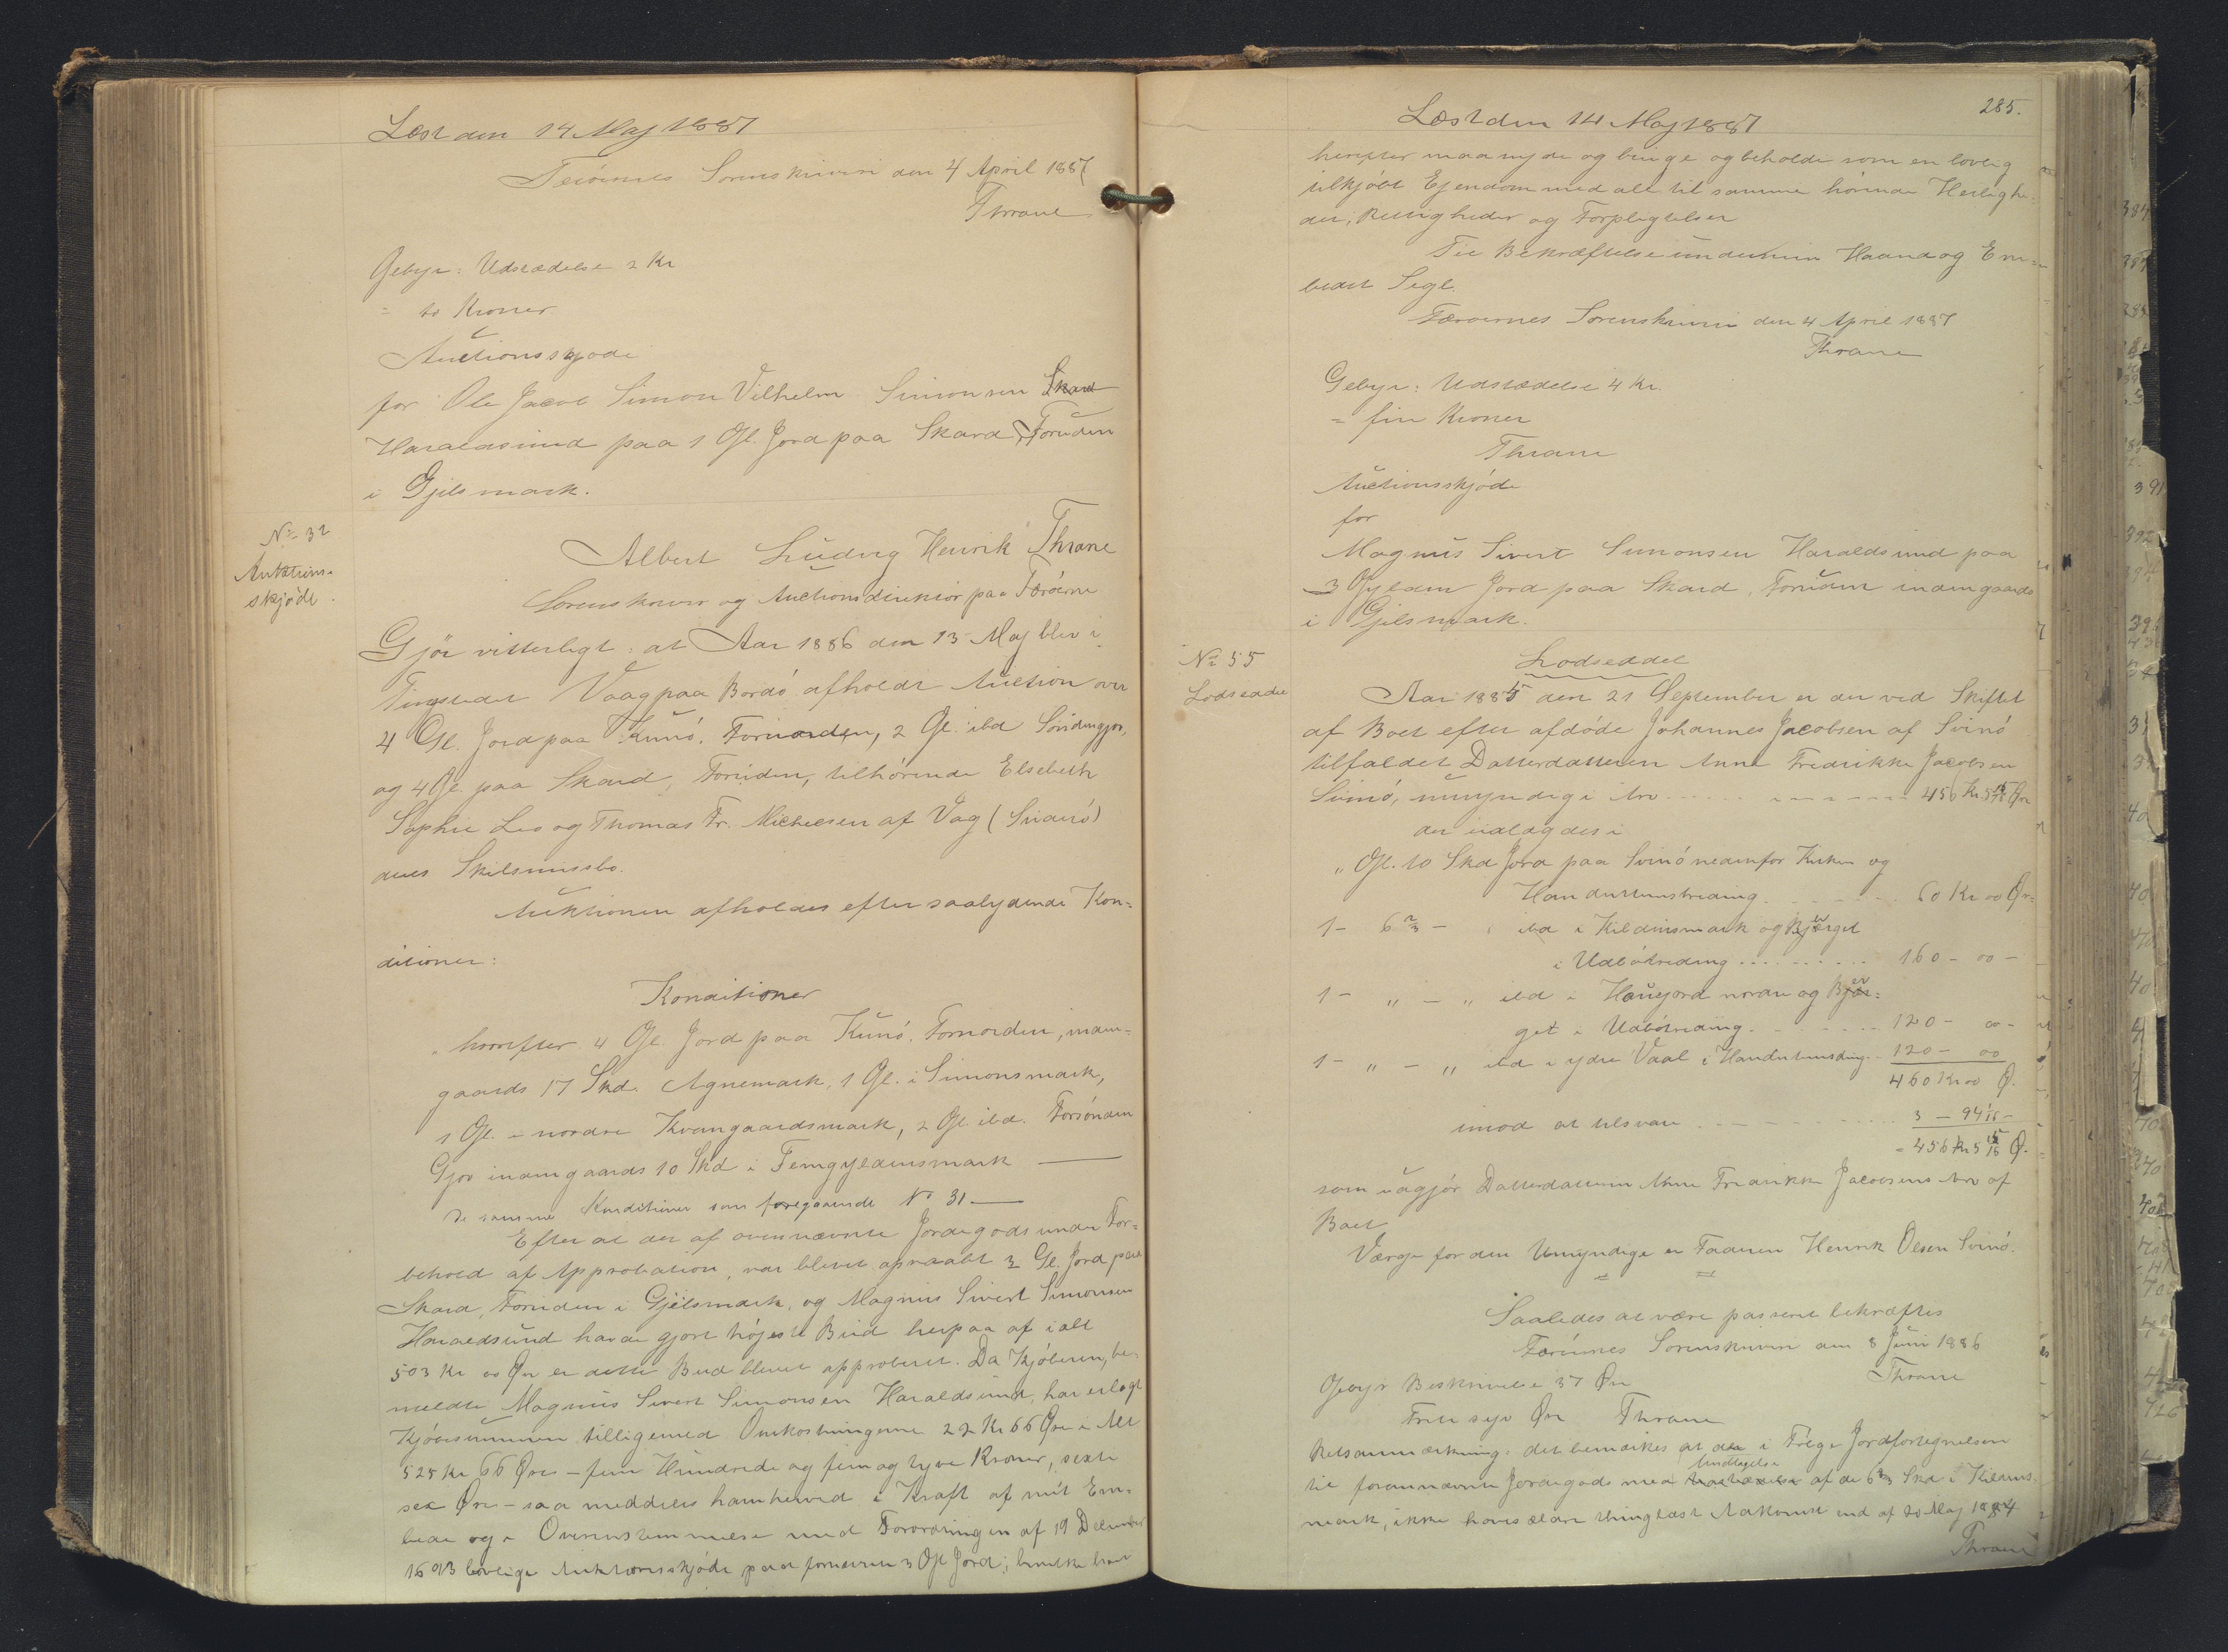 Læst den 14 Maj 1887
Færöernes Sorenskriveri den 4 April 1887
Thrane
Gebyr: Udstædelse 2 Kr
= to Kroner
Auctionsskjøde
for Ole Jacob Simon Vilhelm Simonsen Skard
Haraldssund paa 1 Gl. Jord paa Skard, Foruden
i Gjilsmark.
No 32
Auktions-
skjöde
Albert Ludvig Henrik Thrane
Sorenskriver og Auctionsdirektör paa Færöerne
Gjör vitterligt: at Aar 1886 den 13 Maj blev i
Tingstedet Vaag paa Bordö afholdt Auction over
4 Gl. Jord paa Kunö, Fornorden, 2 Gl. ibd Söndengjov,
og 4 Gl. paa Skard, Foruden, tilhörende Elsebeth
Sophie Leo og Thomas Fr. Michelsen af Vag (Suderö)
deres Skilsmissbo.
Auktionen afholdes efter saalydende Kon-
ditioner:
Konditioner
"hvorefter 4 Gl. Jord paa Kunö, Fornorden, inden-
gaards 17 Skd. Agnemark, 1 Gl. i Simonsmark,
1 Gl. i nordre Kvangaardsmark, 2 Gl. ibd. Forsönden
Gjov indengaards 10 Skd i Femgyldensmark —
De samme Konditioner som foregaaende No 31 —
Efter at der af ovennævnte Jordegods under For-
behold af Approbation, var blevet opraabt 3 Gl. Jord paa
Skard, Foruden i Gjilsmark, og Magnus Sivert Simonsen
Haraldsund havde gjort höjeste Bud herpaa af ialt
503 Kr 00 Öre er dette Bud blevet approberet. Da Kjöberen, be-
meldte Magnus Sivert Simonsen Haraldsund, har erlagt
Kjöbesummen tilligemed Omkostningerne 22 Kr 66 Öre i Alt
525 Kr 66 Öre – fem Hundrede og fem og tyve Kroner, sexti
sex Öre – saa meddeles ham herved i Kraft af mit Em-
bede og i Overensstemmelse med Forordningen af 19 December
1693 lovlige Auktionsskjöde paa fornævnte 3 Gl Jord; hvilke han
285.
Læst den 14 Maj 1887
herefter maa nyde og bruge og beholde som en lovlig
tilkjöbt Ejendom med alt til samme hörende Herlighe-
der, Rettigheder og Forpligtelser
Til Bekræftelse under min Haand og Em-
bedet Segl.
Færoernes Sorenskriveri den 4 April 1887
Thrane
Gebyr: Udstædelse 4 Kr.
= fire Kroner
Thrane
Auctionsskjöde
for
Magnus Sivert Simonsen Haraldsund paa
3 Gylden Jord paa Skard, Foruden indengaards
i Gjilsmark.
No 55
Lodseddel
Lodseddel
Aar 1885 den 21 September er der ved Skiftet
af Boet efter afdöde Johannes Jacobsen af Svinö
tilfaldet Datterdatteren Anne Fredrikke Jacobsen
Svinö, umyndig i Arv - - - - 456 Kr 5 15/16 Öre
der udlagdes i
" Gl. 10 Skd Jord paa Svinö nedenfor Kirken og
60 Kr 00 Öre
1 - 6 2/3 - ibd i Kildensmark og Bjerget
i Udbötreding . . . . . 160 - 00 -
1 - " - " ibd i Haugjord norden og Bjer-
get i Udbötreding . . . . 120 - 00 -
1 - " - " ibd i ydre Vaal i 120 - 00
460 Kr 00 Ö.
imod at tilsvare . . . . 3 - 94 1/16 -
= 456 Kr 5 15/16 Ö.
som udgjör Datterdatteren Anne Fredrikke Jacobsens Arv af
Boet
Værge for den Umyndige er Faderen Henrik Olsen Svinö.
Saaledes at være passeret bekræftes
Færöernes Sorenskriveri den 8 Juni 1886
Thrane
Gebyr Beskrivelse 37 Öre
Treti syv Öre Thrane
Retsanmærkning: det bemærkes at der i Fölge Jordfortegnelsen
til forannævnte Jordegods med Undtagelse af de 6 2/3 Skd i Kildens-
mark, ikke haves ældre thinglæst Adkomst end af 20 Maj 1884
Thrane